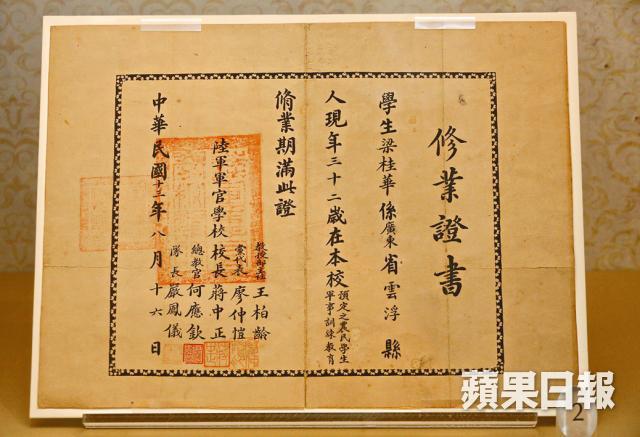 修業證書
學生梁桂華係廣東省雲浮縣
人現年三十二歲在本校預定之農民學生
軍事訓練教育
脩業期滿此證
陸軍軍官學校校長蔣中正
黨代表廖仲愷
教授部主任王柏齡
總教官何應欽
隊長嚴鳳儀
中華民國十三年八月十六日
蘋果日報
2